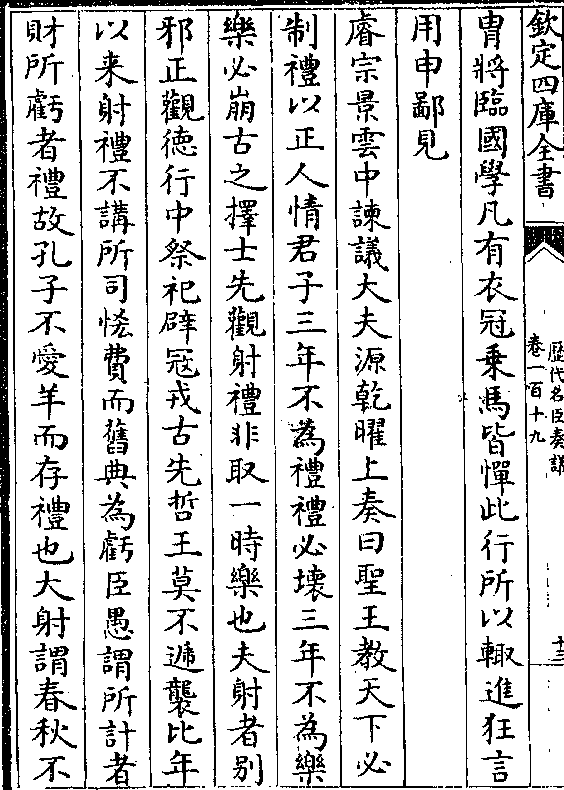 欽定四庫全書
歷代名臣奏議
卷一百十九
十三
胄將臨國學凡有衣冠乗馬皆憚此行所以輙進狂言
用申鄙見
睿宗景雲中諫議大夫源乾曜上奏曰聖王教天下必
制禮以正人情君子三年不為禮禮必壊三年不為樂
樂必崩古之擇士先觀射禮非取一時樂也夫射者别
邪正觀徳行中祭祀辟冦戎古先哲王莫不遞襲比年
以来射禮不講所司恡費而舊典為虧臣愚謂所計者
財所虧者禮故孔子不愛羊而存禮也大射謂春秋不